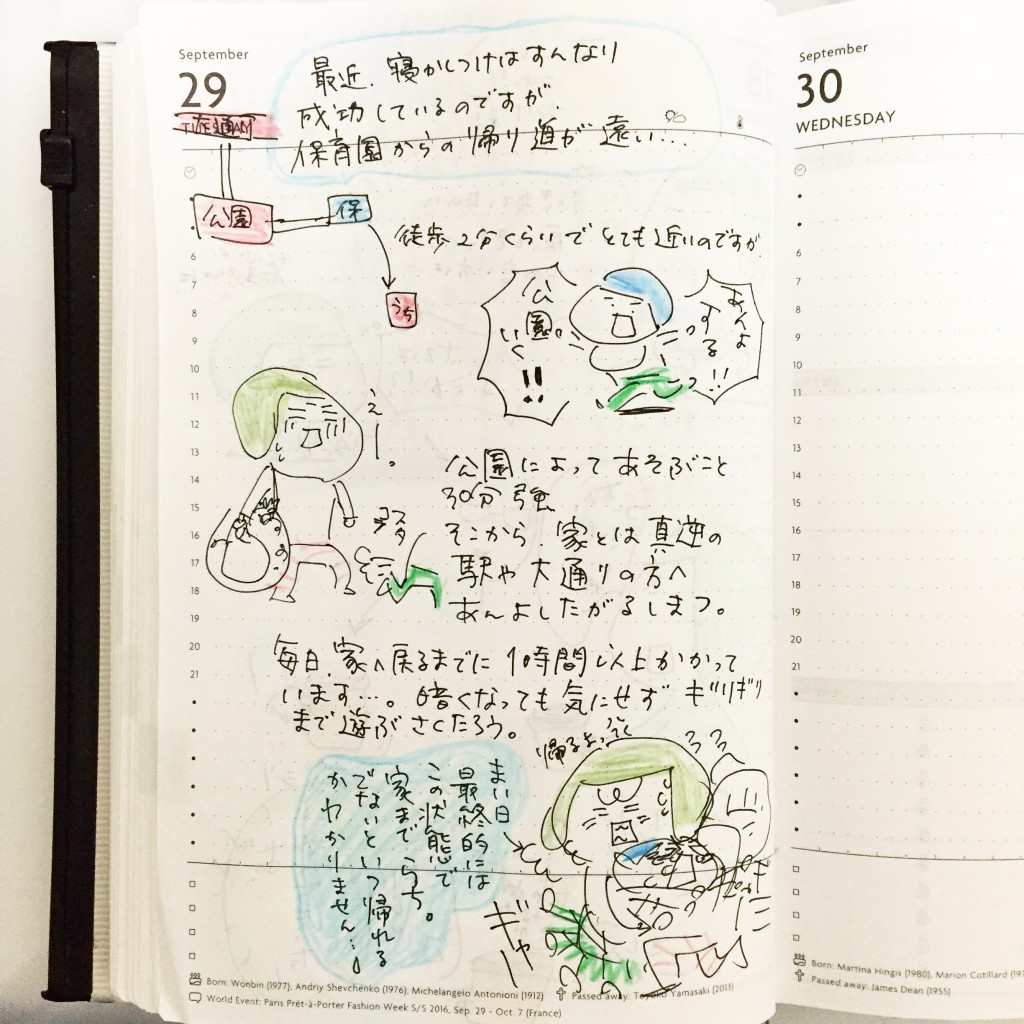 September
29
最近、寝かしつけはすんなり
成功しているのですが、
保育園からの帰り道が遠い…
公園
保
うち
徒歩2分くらいでとても近いのですが
あんよ
する
っ!!
公園。
いく
!!
えー。
公園によってあそぶこと
30分強
そこから家とは真逆の
駅や大通りの方へ
あんよしたがるしまつ。
毎日、家へ戻るまでに1時間以上かかって
います…。暗くなっても気にせずギリギリ
まで遊ぶさくたろう。
帰るよってく
まい日
最終的には
この状態で
家までらち。
でないといつ帰れる
かわかりません…。
ギャー
6
7
8
9
10
11
12
13
14
15
16
17
18
19
20
21
Born: Wonbin (1977), Andriy Shevchenko (1976), Michelangelo Antonioni (1912)
Passed away: Toyoko Yamasaki (2013)
World Event: Paris Prêt-à-Porter Fashion Week S/S 2016, Sep. 29 - Oct. 7 (France)
September
30
WEDNESDAY
6
7
8
9
10
11
12
13
14
15
16
17
18
19
20
21
Born: Martina Hingis (1980), Marion Cotillard
Passed away: James Dean (1955)